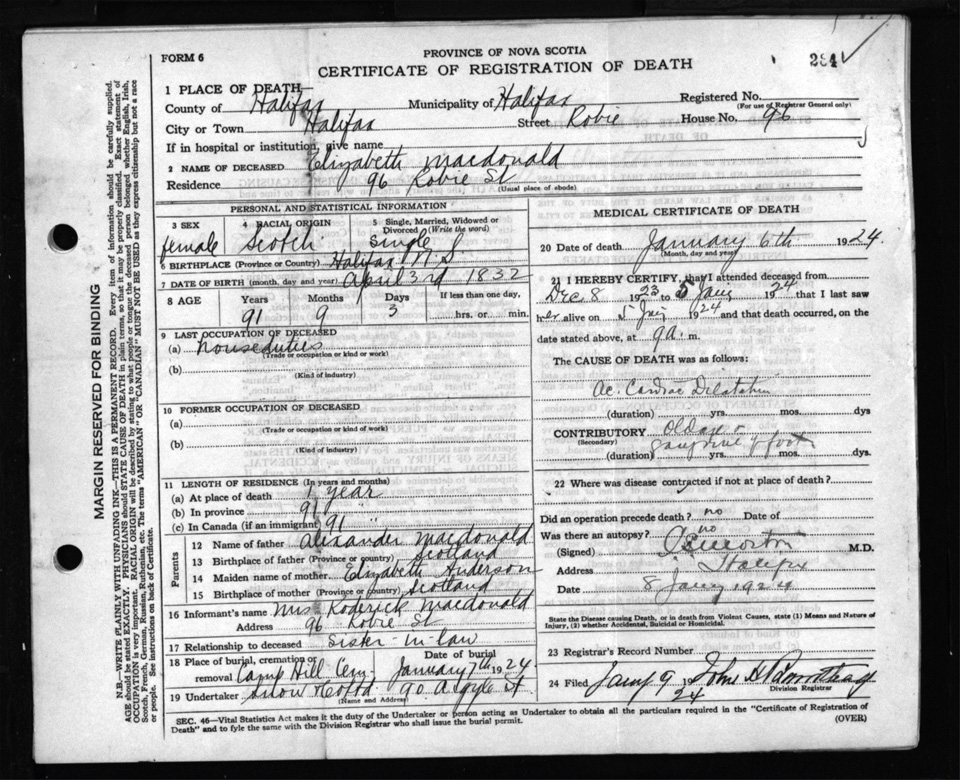 FORM 6
PROVINCE OF NOVA SCOTIA
CERTIFICATE OF REGISTRATION OF DEATH
284
1 PLACE OF DEATH—
County of Halifax Municipality of Halifax Registered No.
(For use of Registrar General only)
City or Town Halifax Street Robie House No. 96
If in hospital or institution, give name
2 NAME OF DECEASED Elizabeth Macdonald
Residence 96 Robie St
(Usual place of abode)
PERSONAL AND STATISTICAL INFORMATION
3 SEX 4 RACIAL ORIGIN 5 Single, Married, Widowed or Divorced (Write the word)
female Scotch Single
6 BIRTHPLACE (Province or Country) Halifax N.S
7 DATE OF BIRTH (month, day and year) April 3rd 1832
8 AGE Years Months Days If less than one day,
91 9 3 hrs. or min.
9 LAST OCCUPATION OF DECEASED
(a) houseduties
(Trade or occupation or kind or work)
(b)
(Kind of industry)
10 FORMER OCCUPATION OF DECEASED
(a)
(Trade or occupation or kind or work)
(b)
(Kind of industry)
11 LENGTH OF RESIDENCE (In years and months)
(a) At place of death 1 year
(b) In province 91 "
(c) In Canada (if an immigrant) 91 "
Parents
12 Name of father Alexander Macdonald
13 Birthplace of father (Province or country) Scotland
14 Maiden name of mother Elizabeth Anderson
15 Birthplace of mother (Province or country) Scotland
16 Informant's name Mrs Roderick Macdonald
Address 96 Robie St
17 Relationship to deceased Sister-in-law
18 Place of burial, cremation or removal Camp Hill Cem. Date of burial January 7th 1924
19 Undertaker Snow 90 Argyle St
(Name and Address)
MEDICAL CERTIFICATE OF DEATH
20 Date of death January 6th 1924.
(Month, day and year)
21 I HEREBY CERTIFY, that I attended deceased from
Dec 8 1923 to 5 Jany 1924 that I last saw
her alive on 5 Jany 1924 and that death occurred, on the
date stated above, at 9 a. m.
The CAUSE OF DEATH was as follows:
Ac. Cardiac Dilatation
(duration) yrs. mos. dys
CONTRIBUTORY Old age +
(Secondary) gangrene of foot
(duration) yrs. mos. dys
22 Where was disease contracted if not at place of death?
Did an operation precede death? no Date of
Was there an autopsy? no
(Signed) M.D.
Address Halifax
Date 8 Jany 1924
State the Disease causing Death, or in death from Violent Causes, state (1) Means and Nature of
Injury, (2) whether Accidental, Suicidal or Homicidal.
23 Registrar's Record Number
24 Filed Jany 9 24 John H
Division Registrar
SEC. 46—Vital Statistics Act makes it the duty of the Undertaker or person acting as Undertaker to obtain all the particulars required in the "Certificate of Registration of
Death" and to fyle the same with the Division Registrar who shall issue the burial permit.
(OVER)
MARGIN RESERVED FOR BINDING
N.B.—WRITE PLAINLY WITH UNFADING INK—THIS IS A PERMANENT RECORD. Every item of information should be carefully supplied.
AGE should be stated EXACTLY. PHYSICIANS should STATE CAUSE OF DEATH in plain terms, so that it may be properly classified. Exact statement of
OCCUPATION is very important. RACIAL ORIGIN will be described by stating to what people or tongue the deceased person belonged whether English, Irish,
Scotch, French, German, Russian, Ruthenian, etc. The terms "AMERICAN" OR "CANADIAN" MUST NOT BE USED as they express citizenship but not a race
or people. See instructions on back of Certificate.